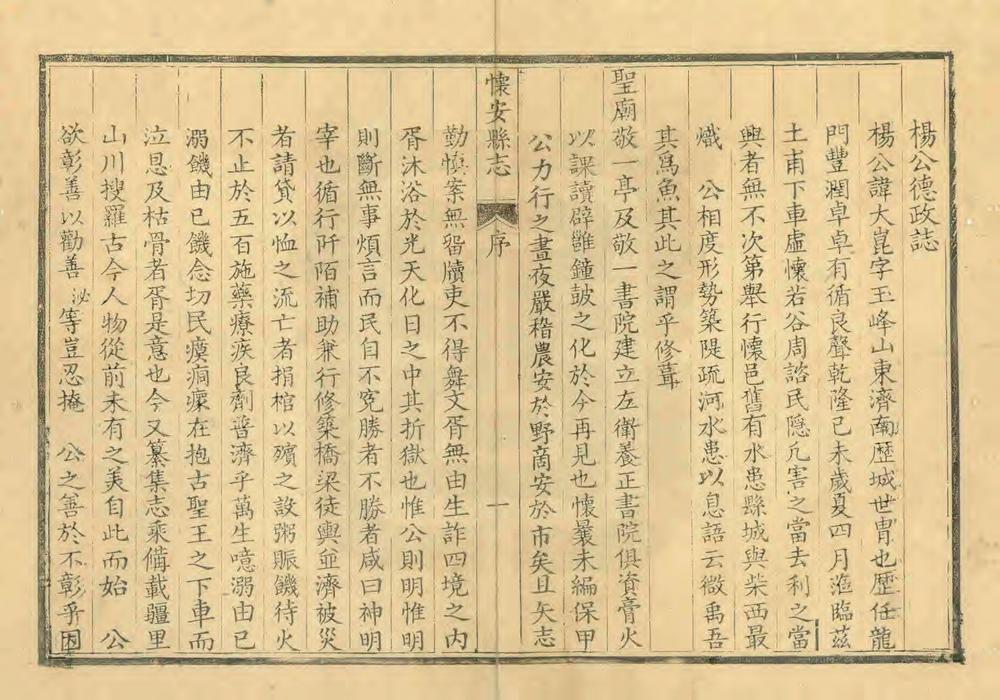 楊公德政誌
楊公諱大崑字玉峰山東濟南歷城世胄也歷任龍
門豐潤卓卓有循良聲乾隆己未歲夏四月涖臨茲
土甫下車虛懷若谷周諮民隱凡害之當去利之當
興者無不次第舉行懷邑舊有水患縣城與柴西最
熾　公相度形勢築隄疏河水患以息語云微禹吾
其為魚其此之謂乎修葺
聖廟敬一亭及敬一書院建立左衛養正書院俱資膏火
以課讀辟雝鐘鼓之化於今再見也懷曩未編保甲
公力行之晝夜嚴稽農安於野商安於市矣且矢志
懷安縣志　序　一
勤慎案無畱牘吏不得舞文胥無由生詐四境之內
胥沐浴於光天化日之中其折獄也惟公則明惟明
則斷無事煩言而民自不冤勝者不勝者咸曰神明
宰也循行阡陌補助兼行修築橋梁徒輿並濟被災
者請貸以恤之流亡者捐棺以殯之設粥賑饑待火
不止於五百施藥療疾良劑普濟乎萬生噫溺由己
溺饑由己饑念切民瘼痌瘝在抱古聖王之下車而
泣恩及枯骨者胥是意也今又纂集志乘備載疆里
山川搜羅古今人物從前未有之美自此而始　公
欲彰善以勸善泌等豈忍掩　公之善於不彰乎因